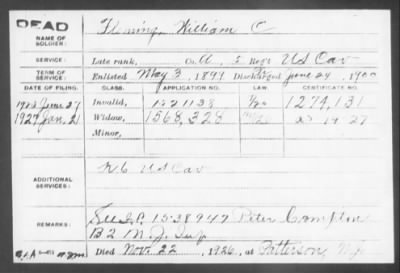 DEAD
NAME OF SOLDIER: Fleming, William C
SERVICE: Late rank, Co. A, 5 Reg't US Cav
TERM OF SERVICE: Enlisted May 3, 1899 Discharged June 24, 1900
DATE OF FILING. CLASS. APPLICATION NO. LAW. CERTIFICATE NO.
June 27 Invalid, 1,274,131
1927 Jan. 21 Widow, 1568,328
Minor,
ADDITIONAL SERVICES: US Cav
REMARKS: 1538947 Peter Compton
B2 N.J. Inf
Died Nov. 22, 1926, at Patterson, N.J.